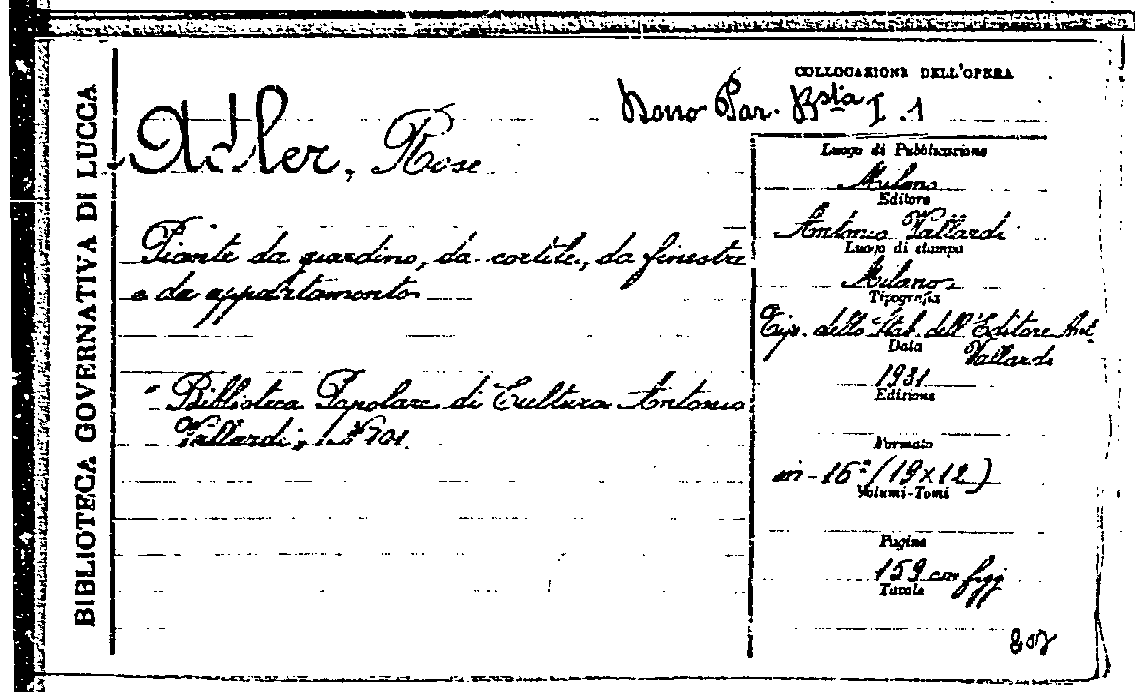 BIBLIOTECA GOVERNATIVA DI LUCCA
COLLOCAZIONE DELL'OPERA
Par. Bsta I. 1
Adler, Rose
Piante da giardino, da cortile, da finestre
e da appartamento
" Biblioteca Popolare di Cultura Antonio
Vallardi", N 101.
Luogo di Pubblicazione
Milano
Editore
Antonio Vallardi
Luogo di stampa
Milano
Tipografia
Tip. dello Stab. dell'Editore Ant.
Vallardi
Data
1931
Edizione
Formato
in-16° (19x12)
Volumi-Tomi
Pagine
159 con figg
Tavole